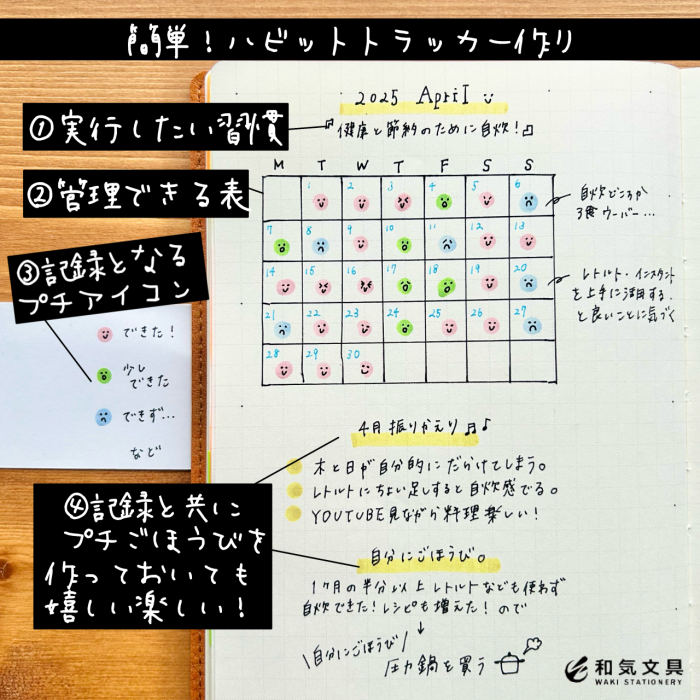 簡単！ハビットトラッカー作り
①実行したい習慣
②管理できる表
③記録となる
プチアイコン
できた！
少し
できた
できず…
など
④記録と共に
プチごほうびを
作っておいても
嬉しい楽しい！
2025 April
♬健康と節約のために自炊！♫
M T W T F S S
1 2 3 4 5 6
7 8 9 10 11 12 13
14 15 16 17 18 19 20
21 22 23 24 25 26 27
28 29 30
自炊どころか
3食ウーバー…
レトルト・インスタント
を上手に活用する
と良いことに気づく
4月振りかえり♬♪
木と日が自分的にだらけてしまう。
レトルトにちょい足しすると自炊感でる。
YOUTUBE見ながら料理楽しい！
自分にごほうび。
1ヶ月の半分以上レトルトなども使わず
自炊できた！レシピも増えた！ので
↓
\自分にごほうび/
圧力鍋を買う
和気文具
WAKI STATIONERY